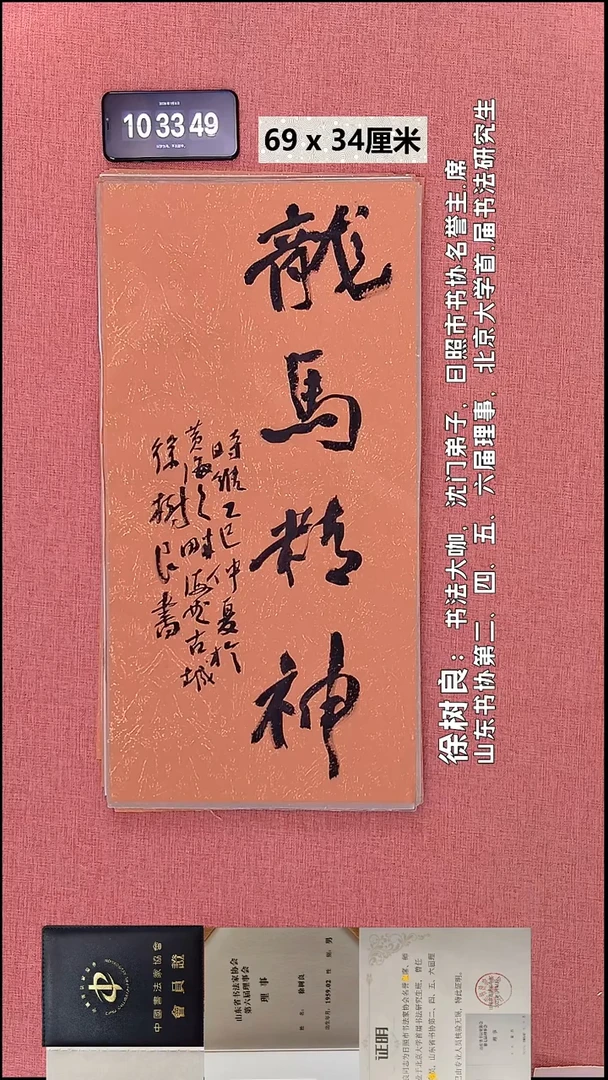 10 33 49
69 x 34厘米
龍馬精神
時維乙巳仲夏於
黄海之畔海曲古城
徐樹良書
徐树良：书法大咖，沈门弟子，日照市书协名誉主席
山东书协第二、四、五、六届理事，北京大学首届书法研究生
中國書法家協會
會員證
山东省书法家协会
第六届理事会
理 事
徐树良
男
1959.02
证明